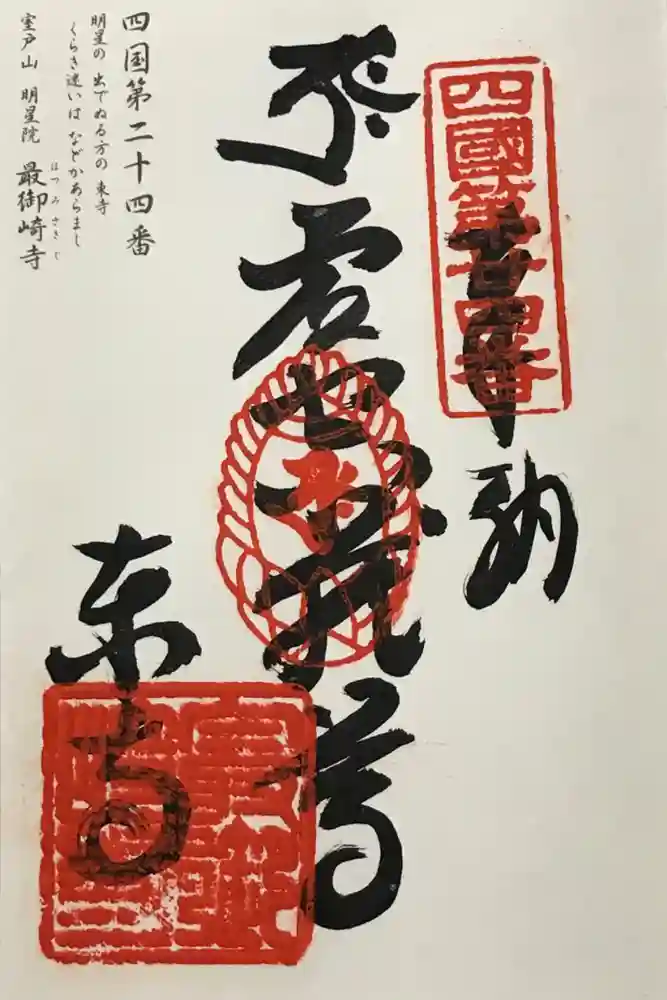 四國第廿四番
奉納
虚空蔵尊
東寺
四国第二十四番
明星の 出でぬる方の 東寺
くらき迷いは などかあらまし
ほつみさきじ
室戸山 明星院 最御崎寺